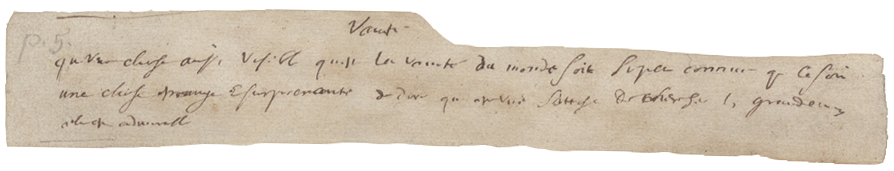 Vanité
p. 5.
qu'une chose aussi visible qu'est la vanité du monde soit si peu connue que ce soit
une chose estrange & surprenante de dire que c'est une sottise de chercher les grandeurs
cela est admirable